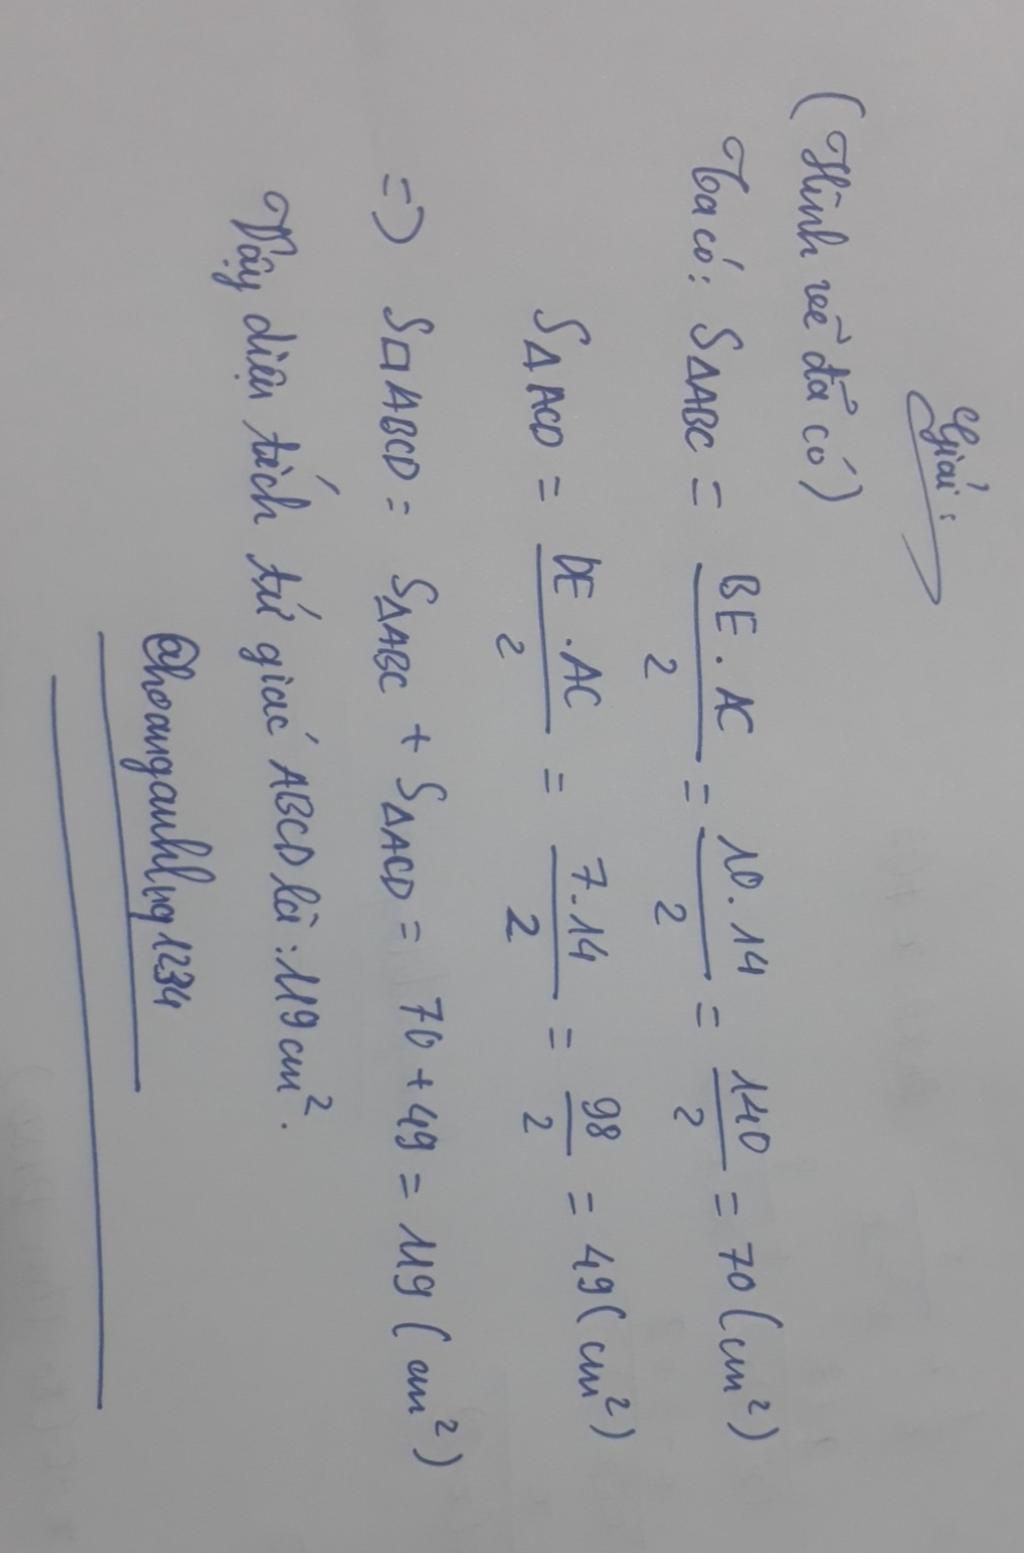 Giải:
(Hình vẽ đã có)
Ta có: S∆ABC = BE.AC/2 = 10.14/2 = 140/2 = 70 (cm²)
S∆ACD = DE.AC/2 = 7.14/2 = 98/2 = 49 (cm²)
=> S□ABCD = S∆ABC + S∆ACD = 70 + 49 = 119 (cm²)
Vậy diện tích tứ giác ABCD là: 119 cm².
@hoanganhlng1234